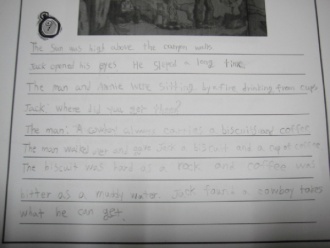 The Sun was high above the canyon walls
Jack opened his eyes. He sliped a long time.
The man and horse were sitting by a fire drinking from cups
Jack: Where did you get those?
The man: A cowboy always carries a biscuit and coffee
The man walked over and gave Jack a biscuit and a cup of coffee
The biscuit was hard as a rock and coffee was
bitter as a muddy water. Jack found a cowboy takes
what he can get.